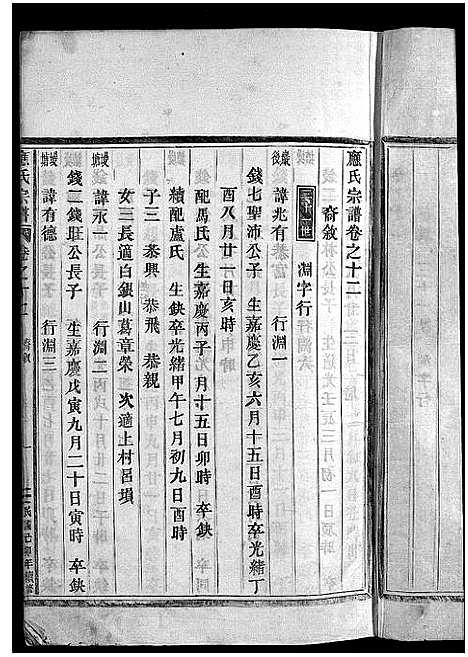 應氏宗譜卷之十二
裔敘
淵字行
諱兆有 行淵一
錢七聖沛公子 生嘉慶乙亥六月十五日酉時卒光緒丁
酉八月廿一日亥時
配馬氏 生嘉慶丙子 月十五日卯時 卒缺
續配盧氏 生缺卒光緒甲午七月初九日酉時
子三 恭興 恭飛 恭親
女三長適白銀山葛章榮 次適上村呂塤
諱永一 行淵二
錢二錢旺公長子 生嘉慶戊寅九月二十日寅時 卒缺
諱有德 行淵三
應氏宗譜 卷之十二 裔敘 一